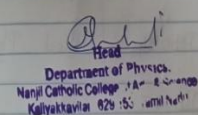 Head
Department of Physics.
Nanjil Catholic College Arts & Science
Kaliyakkavilai 629 153 Tamil Nadu